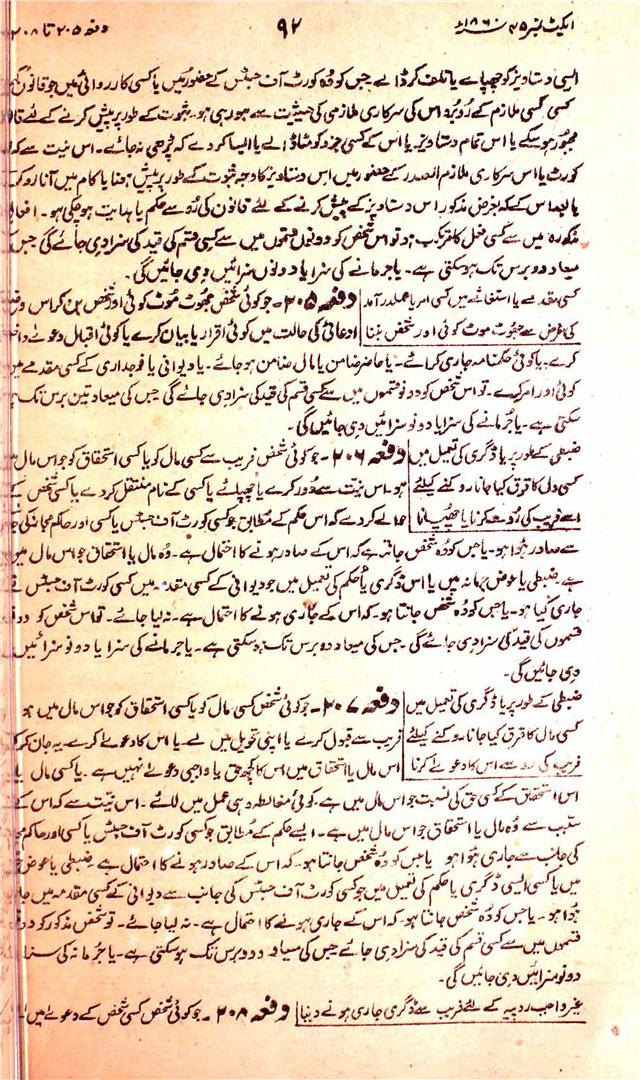 ایکٹ نمبر ۴۵ ۱۸۶۰ء ۹۲ دفعہ ۲۰۵ تا ۲۰۸
ایسی دستاویز کو چھپاے یا تلف کر ڈالے جس کو وہ کورٹ آف جسٹس کے حضور میں یا کسی کارروائی میں جو قانوناً
کسی سرکاری ملازم کے رُوبرو اس کی سرکاری ملازمی کی حیثیت سے ہو رہی ہو۔ ثبوت کے طور پر پیش کرنے کے لئے
مجبور ہو سکے یا اس تمام دستاویز۔ یا اس کے کسی جزو کو مٹا ڈالے یا ایسا کر دے کہ پڑھی نہ جائے۔ اس نیت سے کہ
کورٹ یا اس سرکاری ملازم المصدر کے حضور میں اس دستاویز کا وجہ ثبوت کے طور پر پیش ہونا یا کام میں آنا روک
یا بعد اس کے کہ بغرض مذکور اس دستاویز کے پیش کرنے کے لئے قانون کی رُو سے حکم یا ہدایت ہو چکی ہو۔
مذکورہ میں سے کسی فعل کا مرتکب ہو تو اس شخص کو دونوں قسموں میں سے کسی قسم کی قید کی سزا دی جائے گی جس کی
میعاد دو برس تک ہو سکتی ہے۔ یا جرمانے کی سزا یا دونوں سزائیں دی جائیں گی۔
کسی مقدمے یا استغاثے میں کسی امر یا عملدرآمد دفعہ ۲۰۵۔ جو کوئی شخص جھوٹ موٹ کوئی اور شخص بن کر اس
کی غرض سے جھوٹ موٹ کوئی اور شخص بننا ادعائی کی حالت میں کوئی اقرار یا بیان کرے یا کوئی اقبال دعوے
کرے۔ یا کوئی حکمنامہ جاری کرائے۔ یا حاضر ضامن یا مال ضامن ہو جائے۔ یا دیوانی یا فوجداری کے کسی مقدمے میں
کوئی اور امر کرے۔ تو اس شخص کو دونوں قسموں میں سے کسی قسم کی قید کی سزا دی جائے گی جس کی میعاد تین برس تک
سکتی ہے۔ یا جُرمانے کی سزا یا دونو سزائیں دی جائیں گی۔
ضبطی کے طور پر یا ڈگری کی تعمیل میں دفعہ ۲۰۶۔ جو کوئی شخص فریب سے کسی مال کو یا کسی استحقاق کو جو اس مال میں
کسی مال کا قرق کیا جانا روکنے کیلئے ہو۔ اس نیت سے دُور کرے یا چھپائے یا کسی کے نام منتقل کر دے یا کسی شخص کے
اسے فریب کی رو سے دور کرنا یا چھپانا حوالے کر دے کہ اس حکم کے مُطابق جو کسی کورٹ آف جسٹس یا کسی اور حاکم مجاز کی
سے صادر ہُوا ہو۔ یا جس کو وُہ شخص جانتا ہے کہ اس کے صادر ہونے کا احتمال ہے۔ وُہ مال یا استحقاق جو اس مال میں
ہے ضبطی یا عوض جرمانہ میں یا اس ڈگری یا حکم کی تعمیل میں جو دیوانی کے کسی مقدمہ میں کسی کورٹ آف جسٹس نے
جاری کیا ہو۔ یا جس کو وُہ شخص جانتا ہو۔ کہ اس کے جاری ہونے کا احتمال ہے۔ نہ لیا جائے۔ تو اس شخص کو
قسموں کی قید کی سزا دی جائے گی جس کی میعاد دو برس تک ہو سکتی ہے۔ یا جرمانے کی سزا یا دونو سزائیں
دی جائیں گی۔
ضبطی کے طور پر یا ڈگری کی تعمیل میں دفعہ ۲۰۷۔ جو کوئی شخص کسی مال کو یا کسی استحقاق کو جو اس مال میں ہو
کسی مال کا قرق کیا جانا روکنے کیلئے فریب سے قبول کرے یا اپنی تحویل میں لے۔ یا اس کا دعوے کرے۔ یہ جان کر
فریب کی رو سے اس کا دعوے کرنا اس مال یا استحقاق میں اس کا کچھ حق یا واجبی دعوے نہیں ہے۔ یا کسی مال یا
اس استحقاق کے کسی حق کی نسبت جو اس مال میں ہے۔ کوئی مغالطہ دہی عمل میں لائے۔ اس نیت سے کہ اس کے
سبب سے وُہ مال یا استحقاق جو اس مال میں ہے۔ ایسے حکم کے مُطابق جو کسی کورٹ آف جسٹس یا کسی اور حاکم
کی جانب سے جاری ہُوا ہو یا جس کو وُہ شخص جانتا ہو۔ کہ اس کے صادر ہونے کا احتمال ہے ضبطی یا عوض
میں یا کسی ایسی ڈگری یا حکم کی تعمیل میں جو کسی کورٹ آف جسٹس کی جانب سے دیوانی کے کسی مقدمہ میں
ہُوا ہو۔ یا جس کو وُہ شخص جانتا ہو۔ کہ اس کے جاری ہونے کا احتمال ہے۔ نہ لیا جائے۔ تو شخص مذکور کو
قسموں میں سے کسی قسم کی قید کی سزا دی جائے جس کی میعاد دو برس تک ہو سکتی ہے۔ یا جُرمانہ کی سزا
دونو سزائیں دی جائیں گی۔
غیر واجب روپیہ کے لئے فریب سے ڈگری جاری ہونے دینا دفعہ ۲۰۸۔ جو کوئی شخص کسی شخص کے دعوے میں